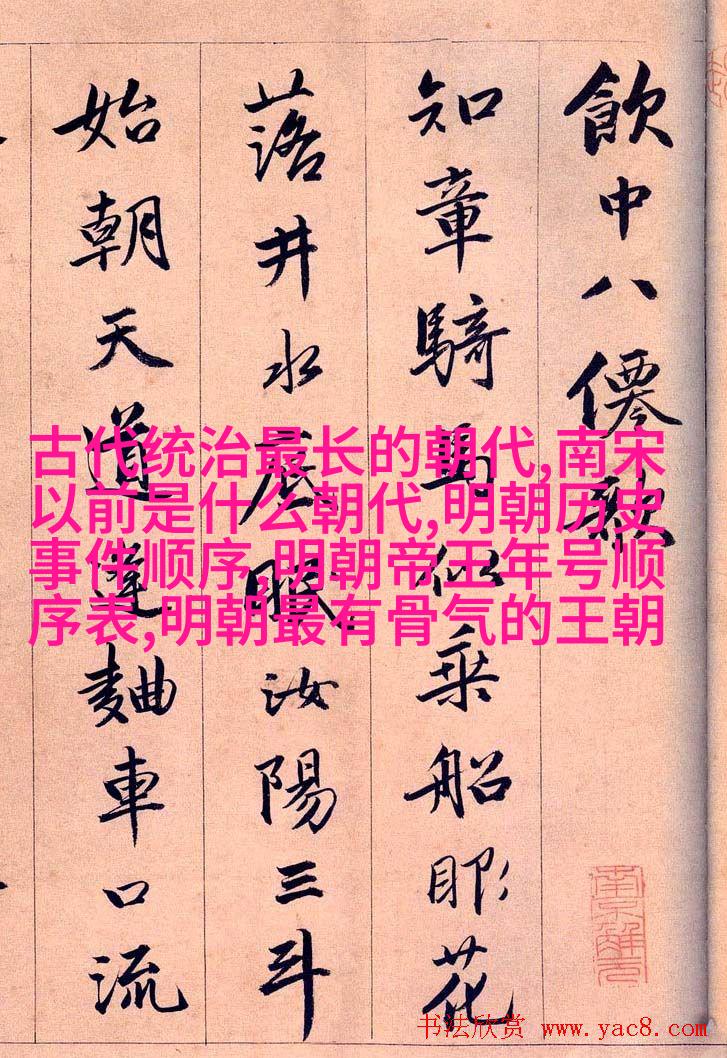 飲中八僊歌
知章騎馬似乘船眼花
落井水底眠汝陽三斗
始朝天道逢麯車口流
古代统治最长的朝代,南宋
以前是什么朝代,明朝历史
事件顺序,明朝帝王年号顺
序表,明朝最有骨气的王朝
南京解元
书法欣赏 www.yac8.com